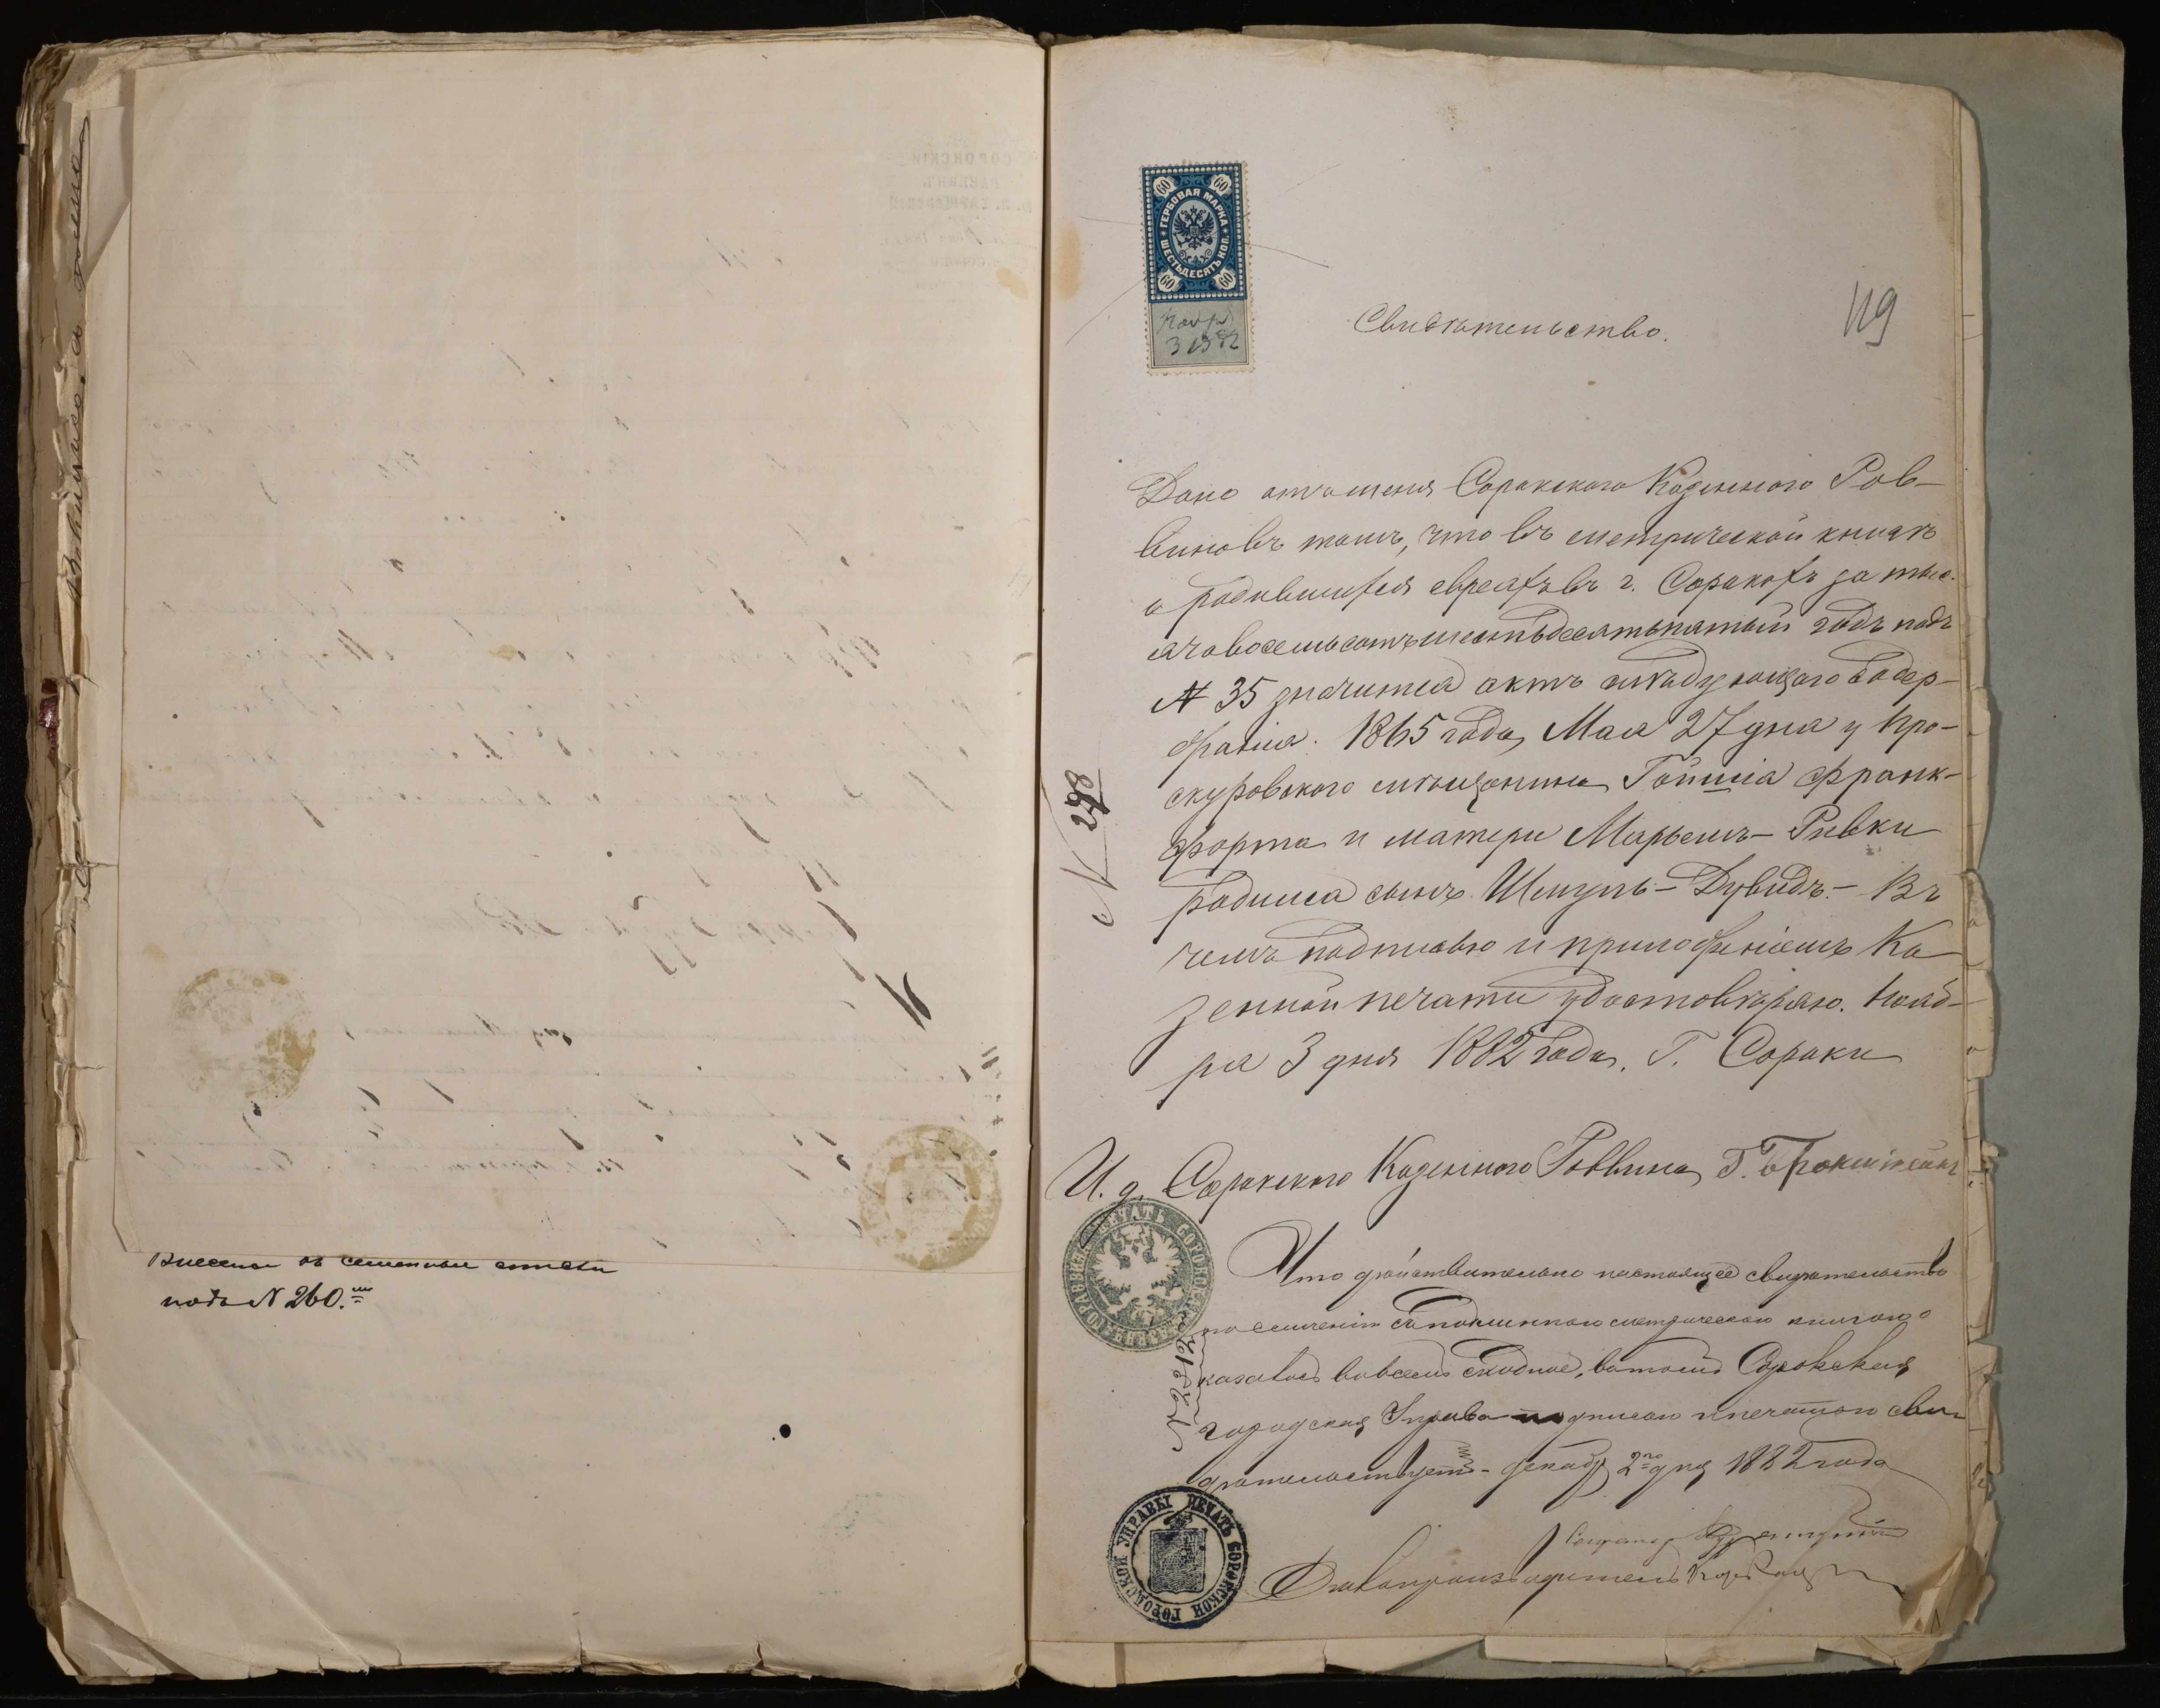 Внесенъ въ семейный списокъ
подъ № 260.
60 60
ГЕРБОВАЯ МАРКА
ШЕСТЬДЕСЯТЪ КОП.
60 60
Ноябр
3 1882
119
Свидѣтельство.
Дано отношенія Сорокского Казенного Рав-
вина въ томъ, что въ метрической книгѣ
о родившихся евреяхъ въ г. Сорокахъ за тыс.
яча восемьсотъ шестьдесятъ пятый годъ подъ
№ 35 значится актъ слѣдующаго содер-
жанія. 1865 года, Мая 27 дня у Про-
скуровского мѣщанина Гойшіа Франк-
форта и матери Марьемъ-Ривки
родился сынъ Шмуль-Дувидъ.- Въ
чемъ подписью и приложеніемъ Ка
зенной печати удостовѣряю. Нояб-
ря 3 дня 1882 года. Г. Сороки
№ 298
И. д. Сорокского Казенного Раввина Г. Брокштейнъ
ПЕЧАТЬ СОРОКСКАГО РАВВИНА
Что дѣйствительно настоящее свидѣтельство
по сличеніи съ подлинною метрическою книгою о
казалось вовсемъ сходное, въ томъ Сорокская
городская Управа подписью и печатью сви-
дѣтельствуетъ - декабр 2го дня 1882 года
№ 2312
Секретарь
Дѣлопроизводитель
ПЕЧАТЬ СОРОКСКОЙ ГОРОДСКОЙ УПРАВЫ